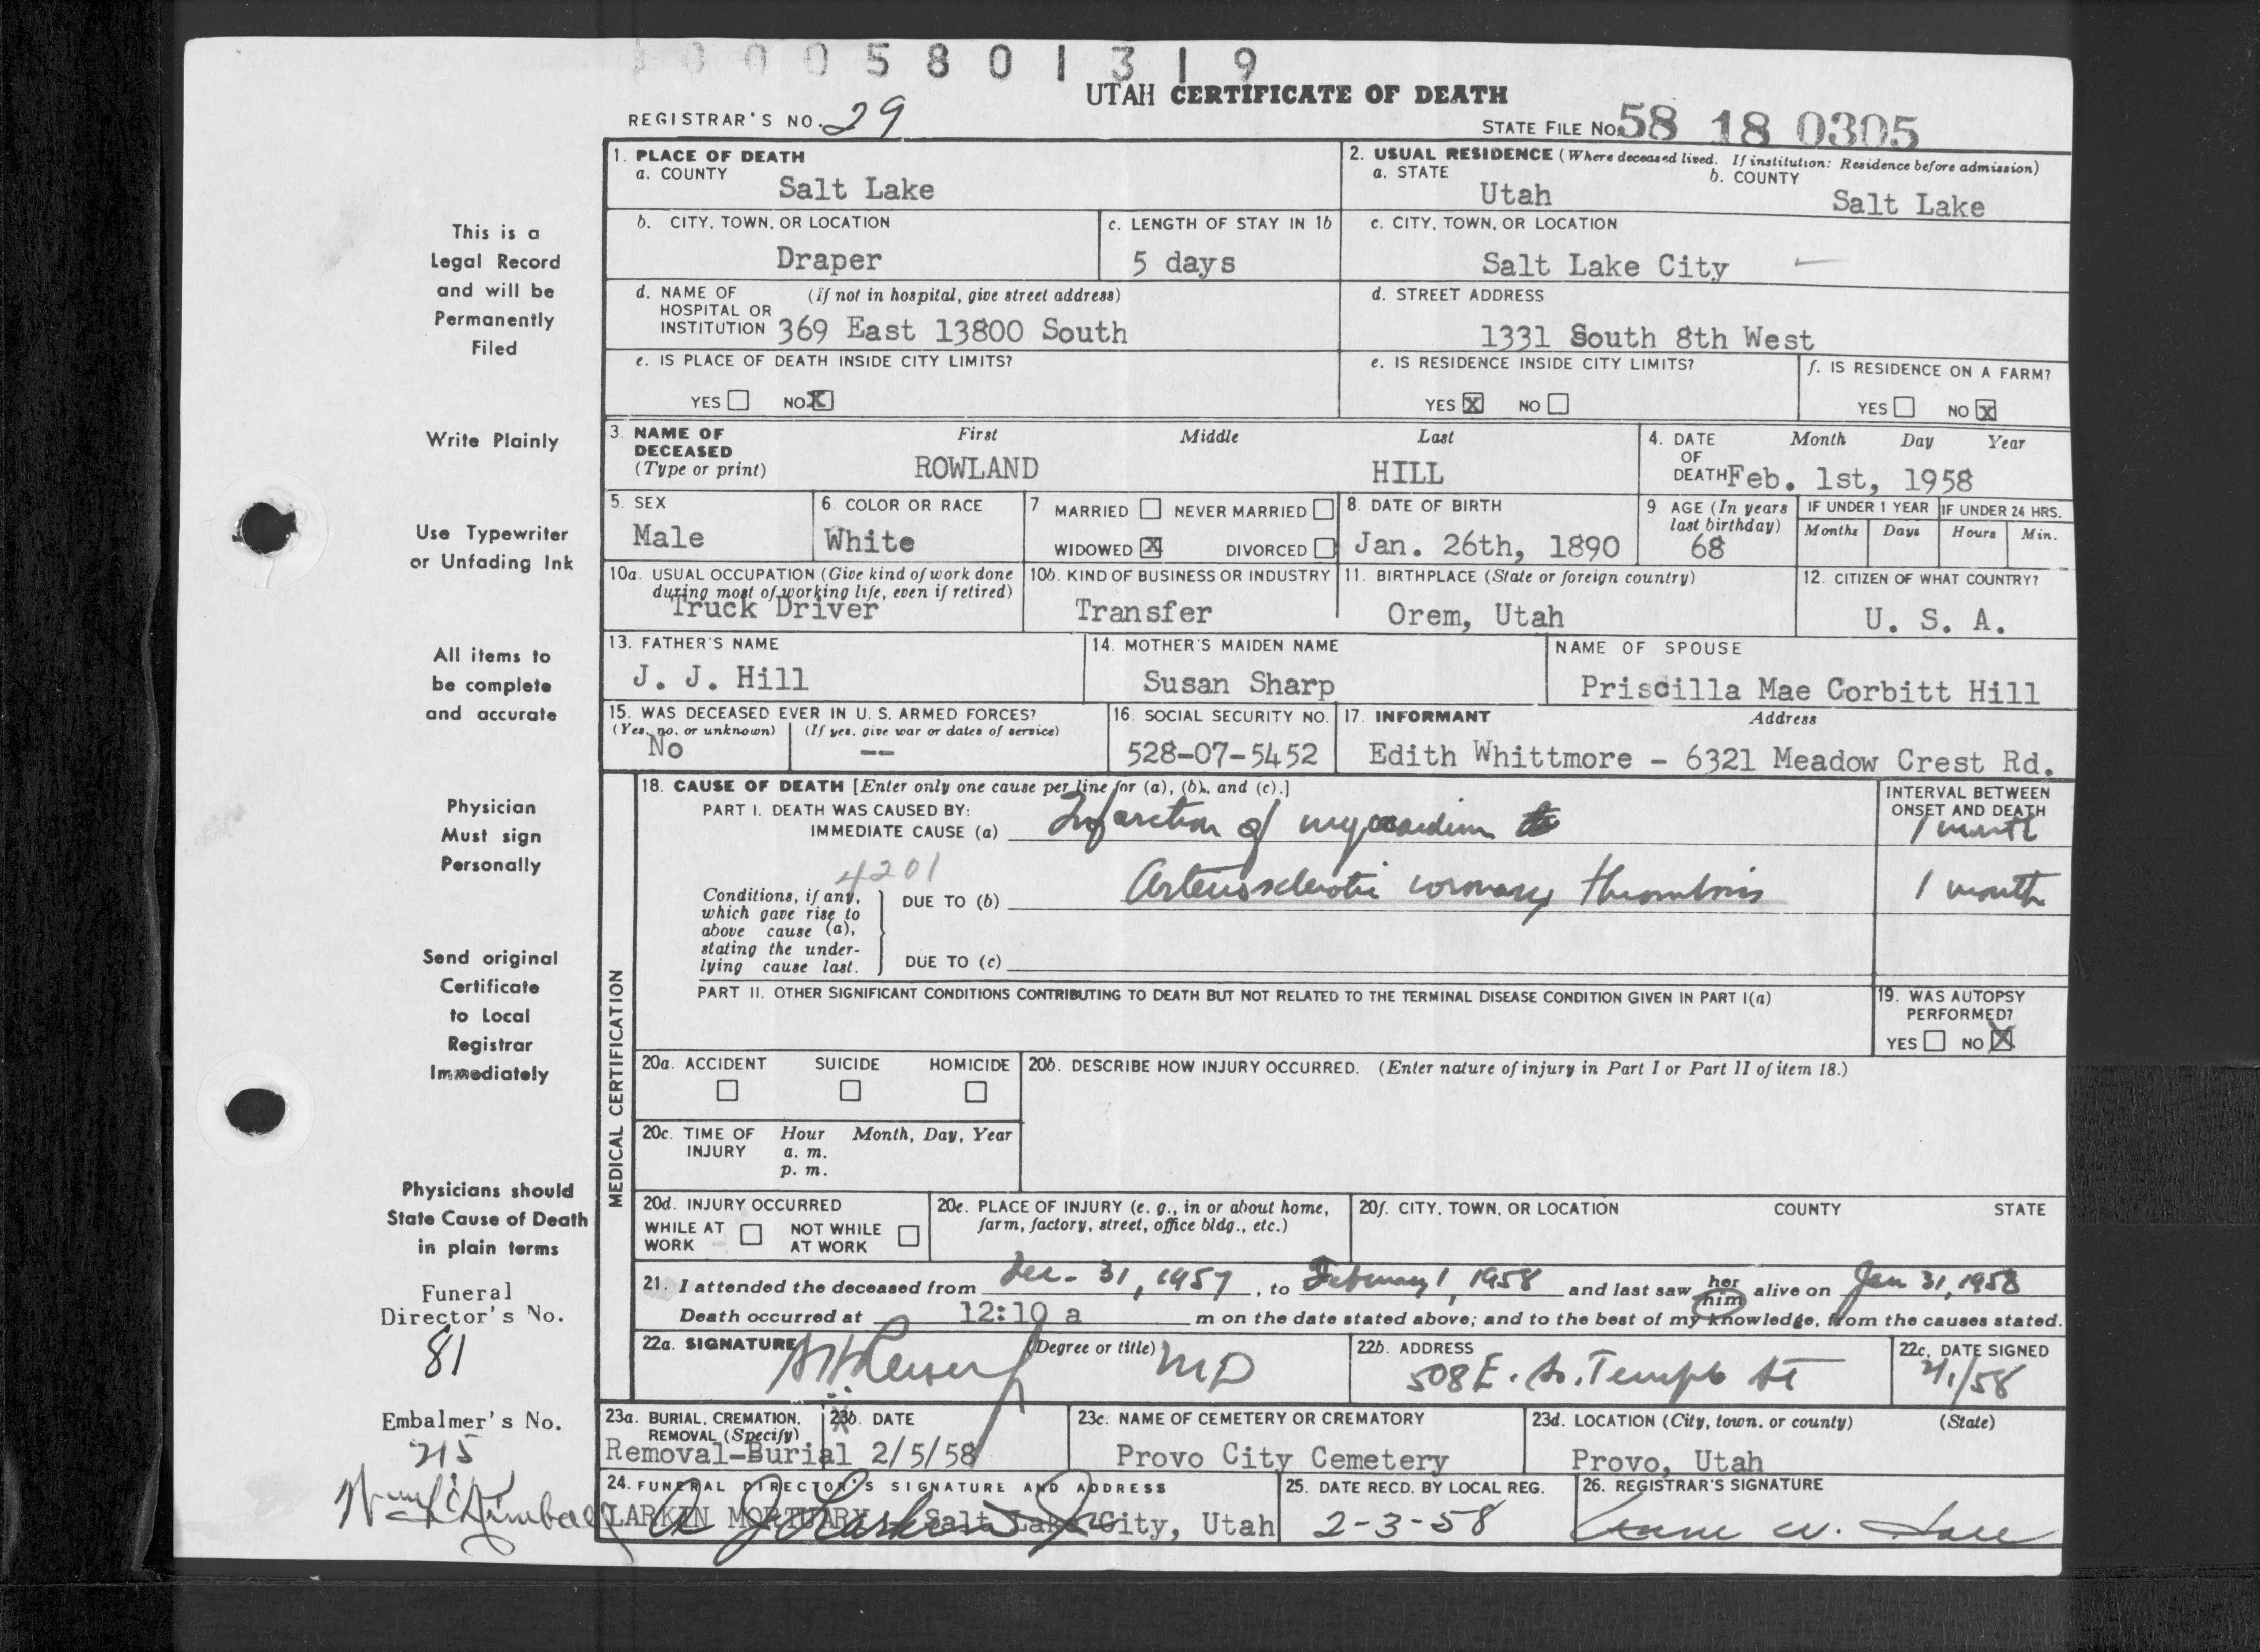 0005801319
UTAH CERTIFICATE OF DEATH
REGISTRAR'S NO. 29
STATE FILE NO. 58 18 0305
This is a
Legal Record
and will be
Permanently
Filed
Write Plainly
Use Typewriter
or Unfading Ink
All items to
be complete
and accurate
Physician
Must sign
Personally
Send original
Certificate
to Local
Registrar
Immediately
Physicians should
State Cause of Death
in plain terms
Funeral
Director's No.
81
Embalmer's No.
215
1. PLACE OF DEATH
a. COUNTY
Salt Lake
2. USUAL RESIDENCE (Where deceased lived. If institution: Residence before admission)
a. STATE b. COUNTY
Utah Salt Lake
b. CITY, TOWN, OR LOCATION
Draper
c. LENGTH OF STAY IN 1b
5 days
c. CITY, TOWN, OR LOCATION
Salt Lake City
d. NAME OF (If not in hospital, give street address)
HOSPITAL OR
INSTITUTION 369 East 13800 South
d. STREET ADDRESS
1331 South 8th West
e. IS PLACE OF DEATH INSIDE CITY LIMITS?
YES NO X
e. IS RESIDENCE INSIDE CITY LIMITS?
YES X NO
f. IS RESIDENCE ON A FARM?
YES NO X
3. NAME OF First Middle Last
DECEASED
(Type or print) ROWLAND HILL
4. DATE Month Day Year
OF
DEATH Feb. 1st, 1958
5. SEX
Male
6. COLOR OR RACE
White
7 MARRIED NEVER MARRIED
WIDOWED X DIVORCED
8. DATE OF BIRTH
Jan. 26th, 1890
9 AGE (In years
last birthday)
68
IF UNDER 1 YEAR IF UNDER 24 HRS.
Months Days Hours Min.
10a. USUAL OCCUPATION (Give kind of work done
during most of working life, even if retired)
Truck Driver
10b. KIND OF BUSINESS OR INDUSTRY
Transfer
11. BIRTHPLACE (State or foreign country)
Orem, Utah
12. CITIZEN OF WHAT COUNTRY?
U. S. A.
13. FATHER'S NAME
J. J. Hill
14. MOTHER'S MAIDEN NAME
Susan Sharp
NAME OF SPOUSE
Priscilla Mae Corbitt Hill
15. WAS DECEASED EVER IN U. S. ARMED FORCES?
(Yes, no, or unknown) (If yes, give war or dates of service)
No --
16. SOCIAL SECURITY NO.
528-07-5452
17. INFORMANT Address
Edith Whittmore - 6321 Meadow Crest Rd.
MEDICAL CERTIFICATION
18. CAUSE OF DEATH [Enter only one cause per line for (a), (b), and (c).]
PART I. DEATH WAS CAUSED BY:
IMMEDIATE CAUSE (a) Infarction of myocardium
INTERVAL BETWEEN
ONSET AND DEATH
1 month
4201
Conditions, if any,
which gave rise to
above cause (a),
stating the under-
lying cause last.
DUE TO (b) Arteriosclerotic coronary thrombosis 1 month
DUE TO (c)
PART II. OTHER SIGNIFICANT CONDITIONS CONTRIBUTING TO DEATH BUT NOT RELATED TO THE TERMINAL DISEASE CONDITION GIVEN IN PART I(a)
19. WAS AUTOPSY
PERFORMED?
YES NO X
20a. ACCIDENT SUICIDE HOMICIDE
20b. DESCRIBE HOW INJURY OCCURRED. (Enter nature of injury in Part I or Part II of item 18.)
20c. TIME OF Hour Month, Day, Year
INJURY a. m.
p. m.
20d. INJURY OCCURRED
WHILE AT NOT WHILE
WORK AT WORK
20e. PLACE OF INJURY (e. g., in or about home,
farm, factory, street, office bldg., etc.)
20f. CITY, TOWN, OR LOCATION COUNTY STATE
21. I attended the deceased from Dec- 31, 1957, to February 1, 1958 and last saw her him alive on Jan 31, 1958
Death occurred at 12:10 a m on the date stated above; and to the best of my knowledge, from the causes stated.
22a. SIGNATURE (Degree or title) MD
22b. ADDRESS
508 E. So. Temple St
22c. DATE SIGNED
2/1/58
23a. BURIAL, CREMATION,
REMOVAL (Specify)
Removal-Burial
23b. DATE
2/5/58
23c. NAME OF CEMETERY OR CREMATORY
Provo City Cemetery
23d. LOCATION (City, town, or county) (State)
Provo, Utah
24. FUNERAL DIRECTOR'S SIGNATURE AND ADDRESS
LARKIN MORTUARY Salt Lake City, Utah
25. DATE RECD. BY LOCAL REG.
2-3-58
26. REGISTRAR'S SIGNATURE